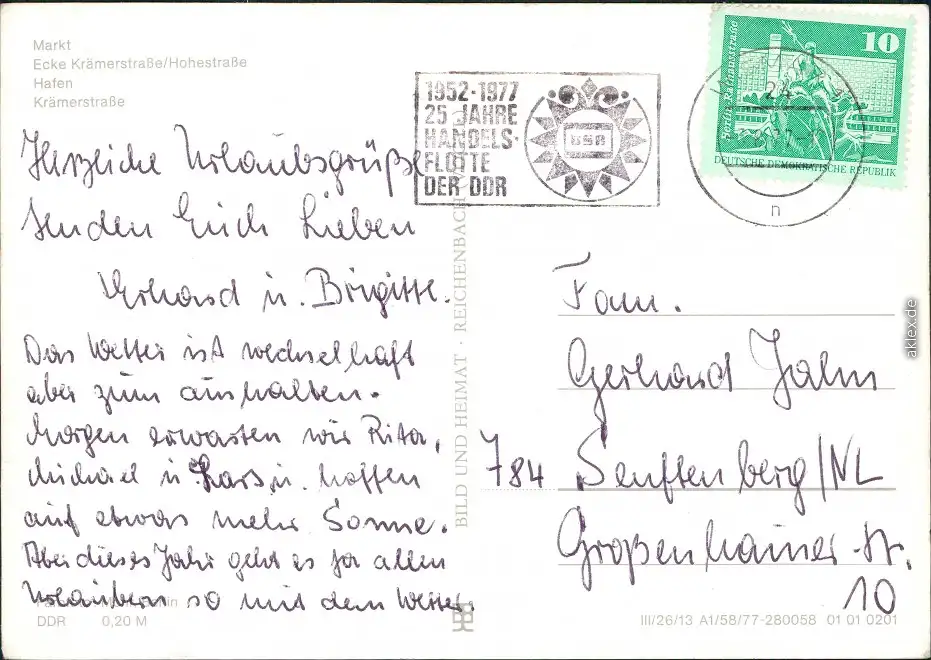 Markt
Ecke Krämerstraße/Hohestraße
Hafen
Krämerstraße
1952-1977
25 JAHRE
HANDELS-
FLOTTE
DER DDR
DSR
10
DEUTSCHE DEMOKRATISCHE REPUBLIK
24
n
Herzliche Urlaubsgrüße
senden Euch Lieben
Erhard u. Brigitte.
Das Wetter ist wechselhaft
aber zum aushalten.
Morgen erwarten wir Rita,
Michael u Lars u. hoffen
auf etwas mehr Sonne.
Aber dieses Jahr geht es ja allen
Urlaubern so mit dem Wetter.
DDR 0,20 M
BILD UND HEIMAT · REICHENBACH
Fam.
Gerhard Jahn
784 Senftenberg/NL
Großenhainer-Str.
10
III/26/13 A1/58/77-280058 01 01 0201
aklex.de